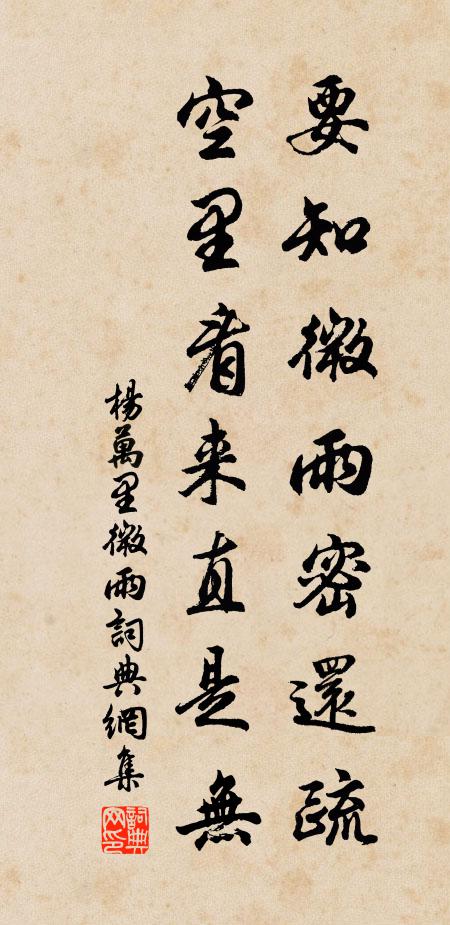 要知微雨密還疏
空里看来直是無
楊萬里微雨詞典網集
詞典网印